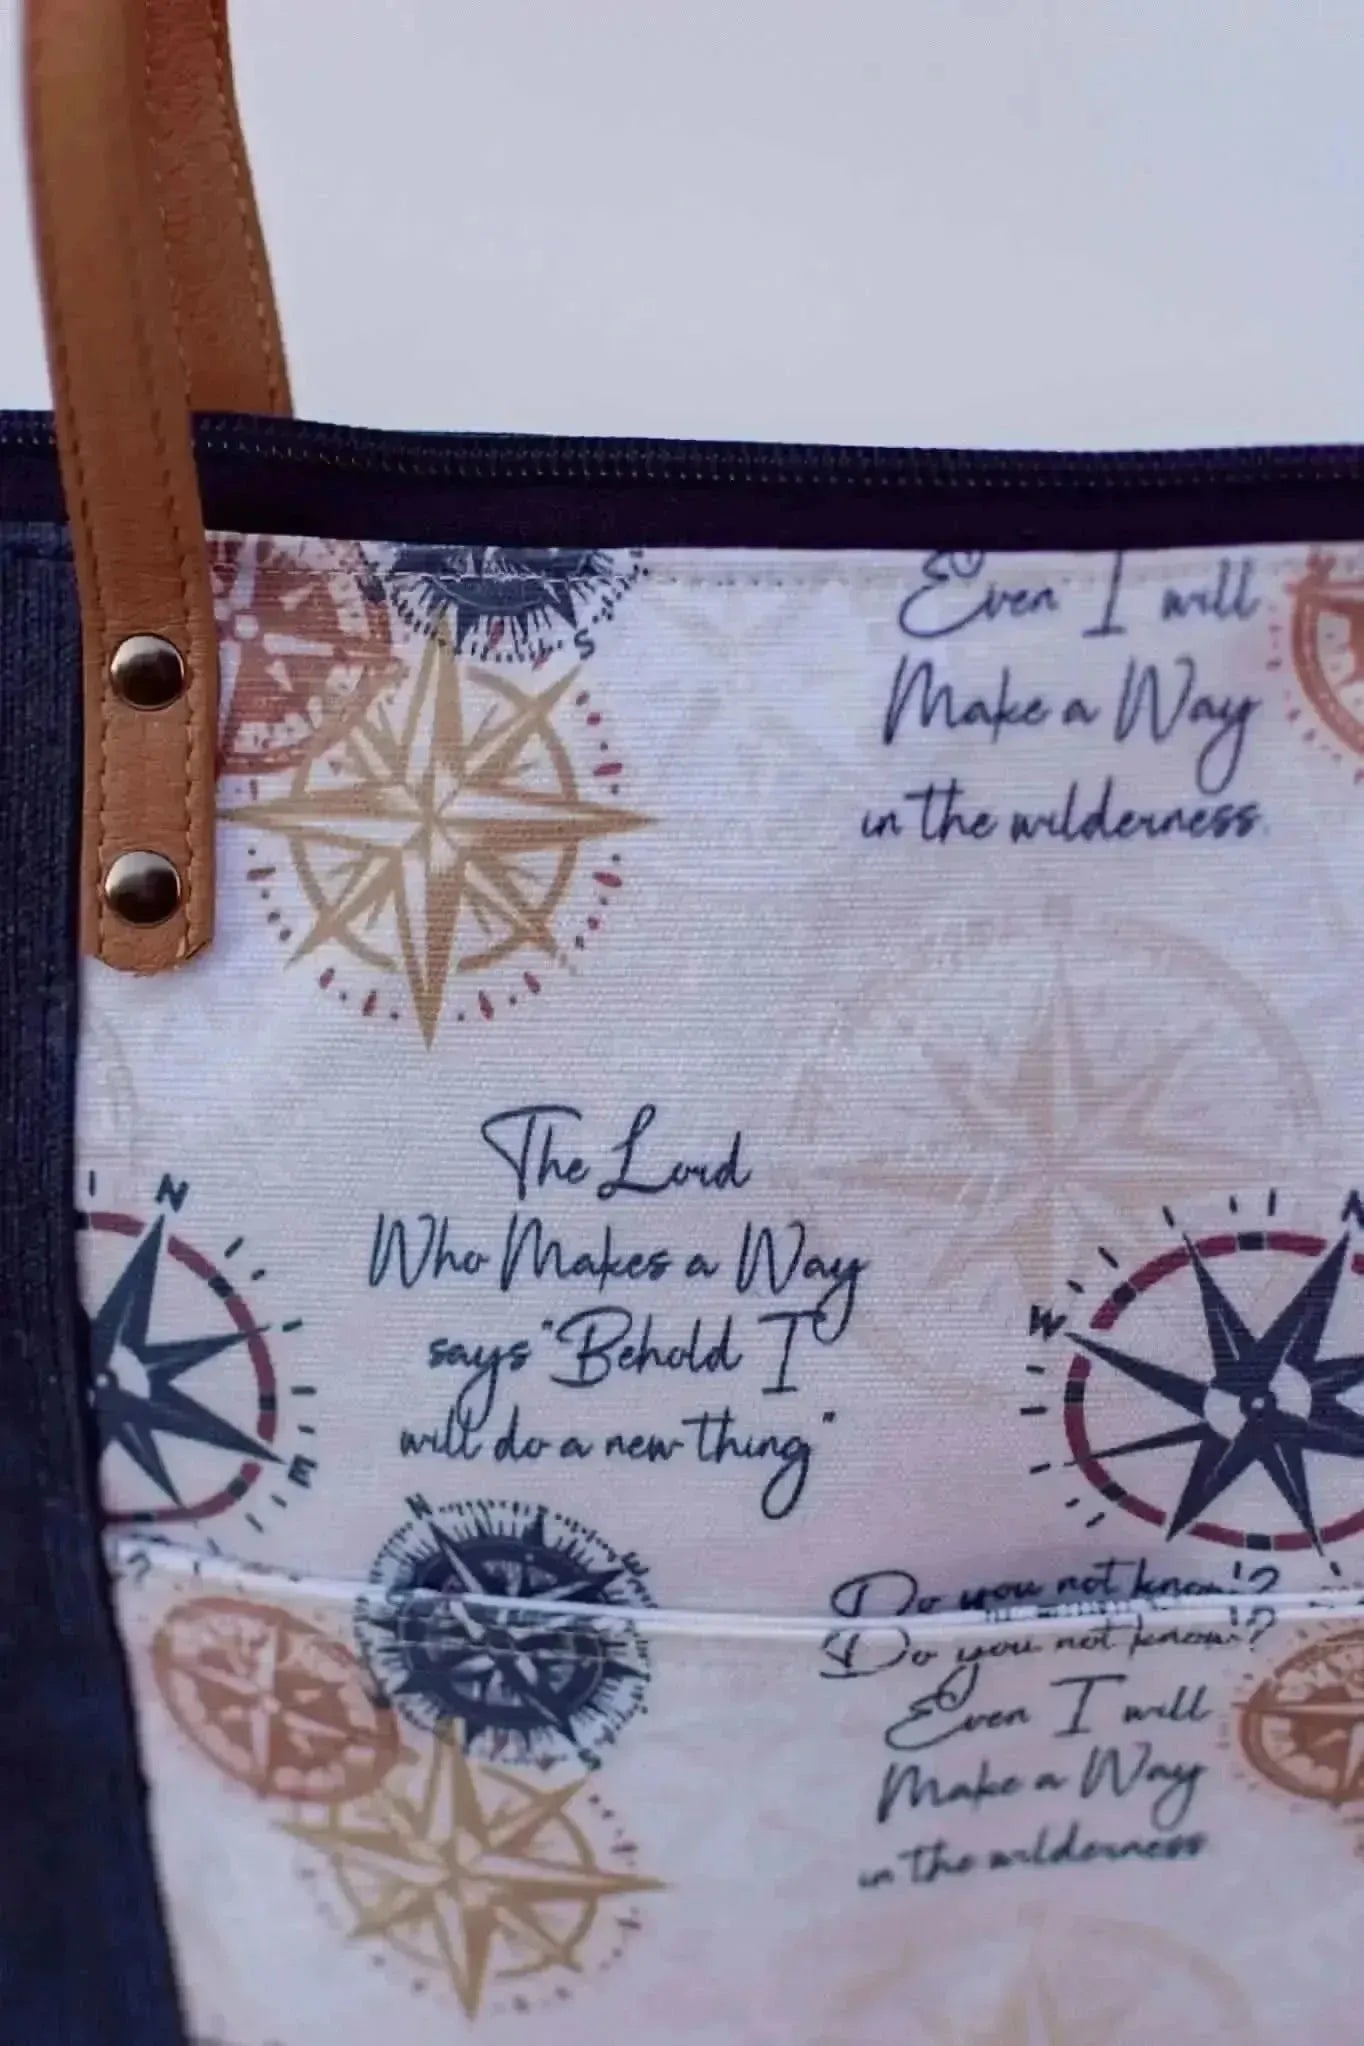 Even I will
Make a Way
in the wilderness
The Lord
Who Makes a Way
says "Behold I
will do a new thing"
Do you not know'?
Do you not know'?
Even I will
Make a Way
in the wilderness
S
N
E
W
N
N
W
S